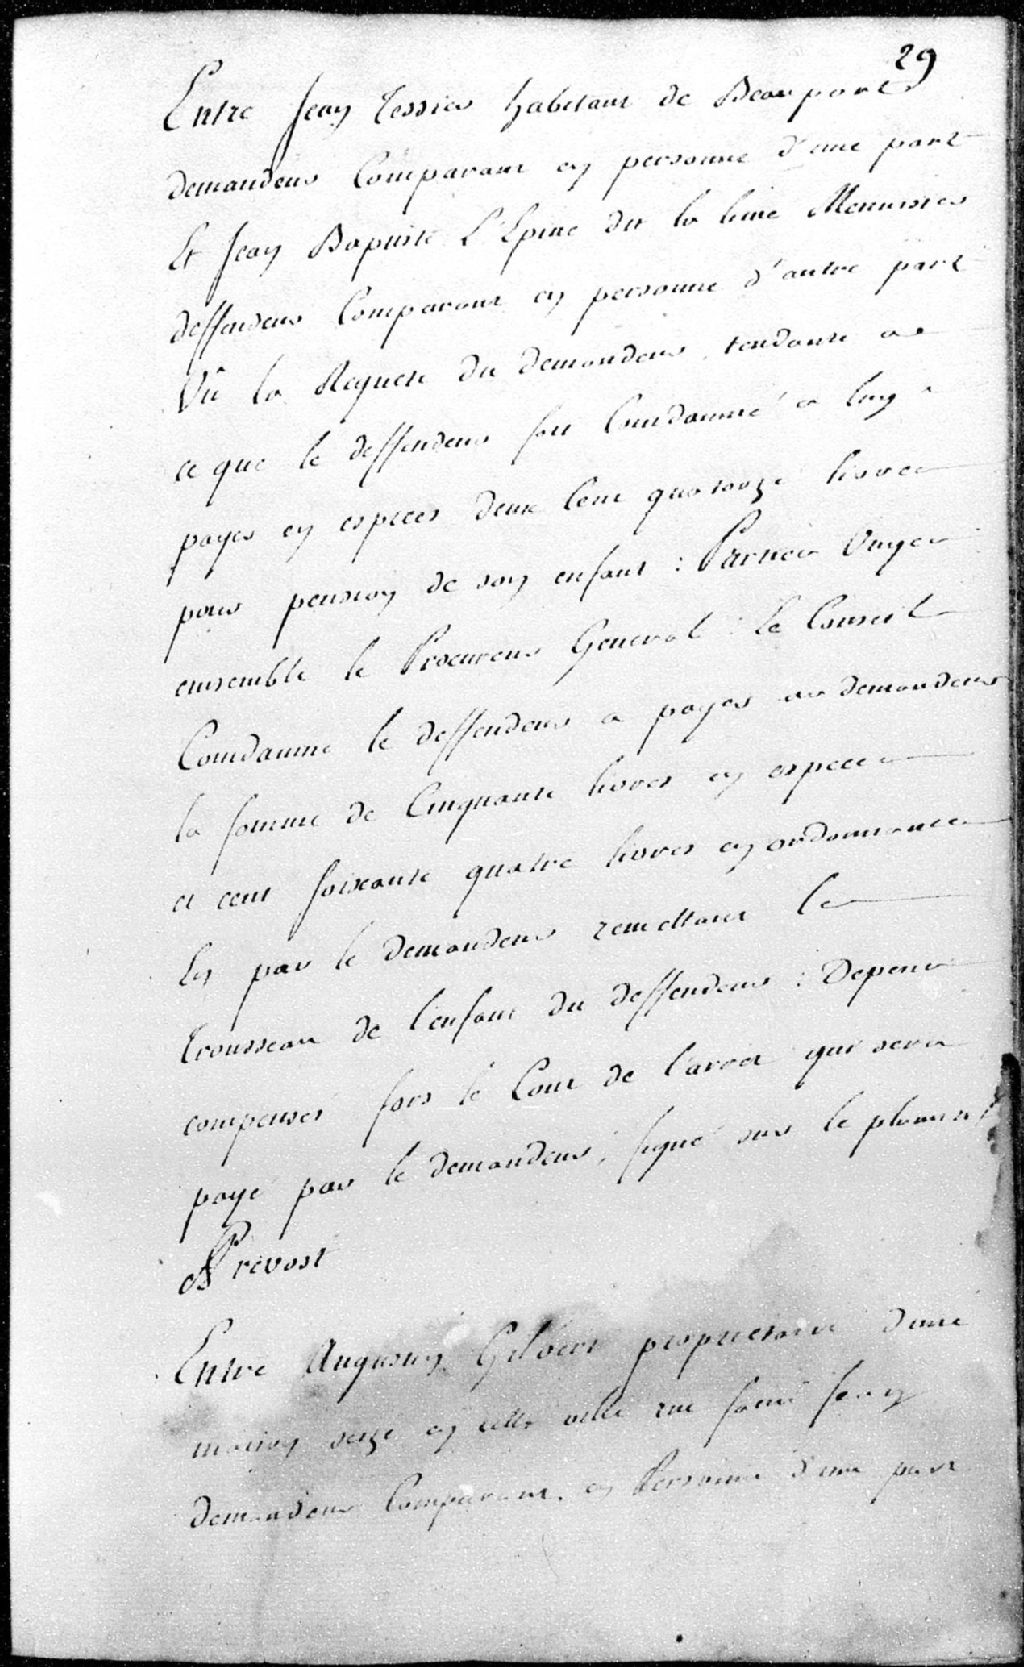 29
Entre Jean Tessier habitant de Beauport
demandeur Comparant en personne d'une part
Et Jean Baptiste L'Epine dit la lime Menuisier
deffendeur Comparant en personne d'autre part
Vû la Requete du demandeur, tendante a
ce que le deffendeur soit Condamné a luy
payer en especes deux Cent quatorze livres
pour pension de son enfant : Parties Ouyes
ensemble le Procureur General : Le Conseil
Condamne le deffendeur a payer au demandeur
la somme de Cinquante livres en especes
et cent soixante quatre livres en ordonnances
En par le demandeur remettant le
trousseau de l'enfant du deffendeur : Depens
compensés fors le Cout de l'arret qui sera
payé par le demandeur, signé sur le plumitif
Prevost
Entre Augustin Gilbert proprietaire d'une
maison size en cette ville rue saint Jean
demandeur Comparant en Personne d'une part